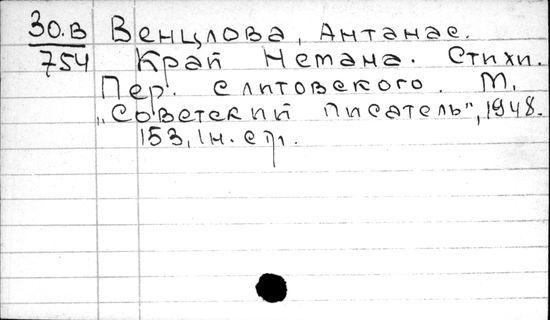 30.В Венцлова, Антанас.
754 Край Немана. Стихи.
Пер. с литовского. М.
„Советский писатель", 1948.
153, 1 н. стр.